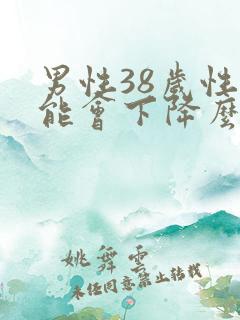 男性38歲性
能會下降麼
姚舜雲
未经同意禁止转载